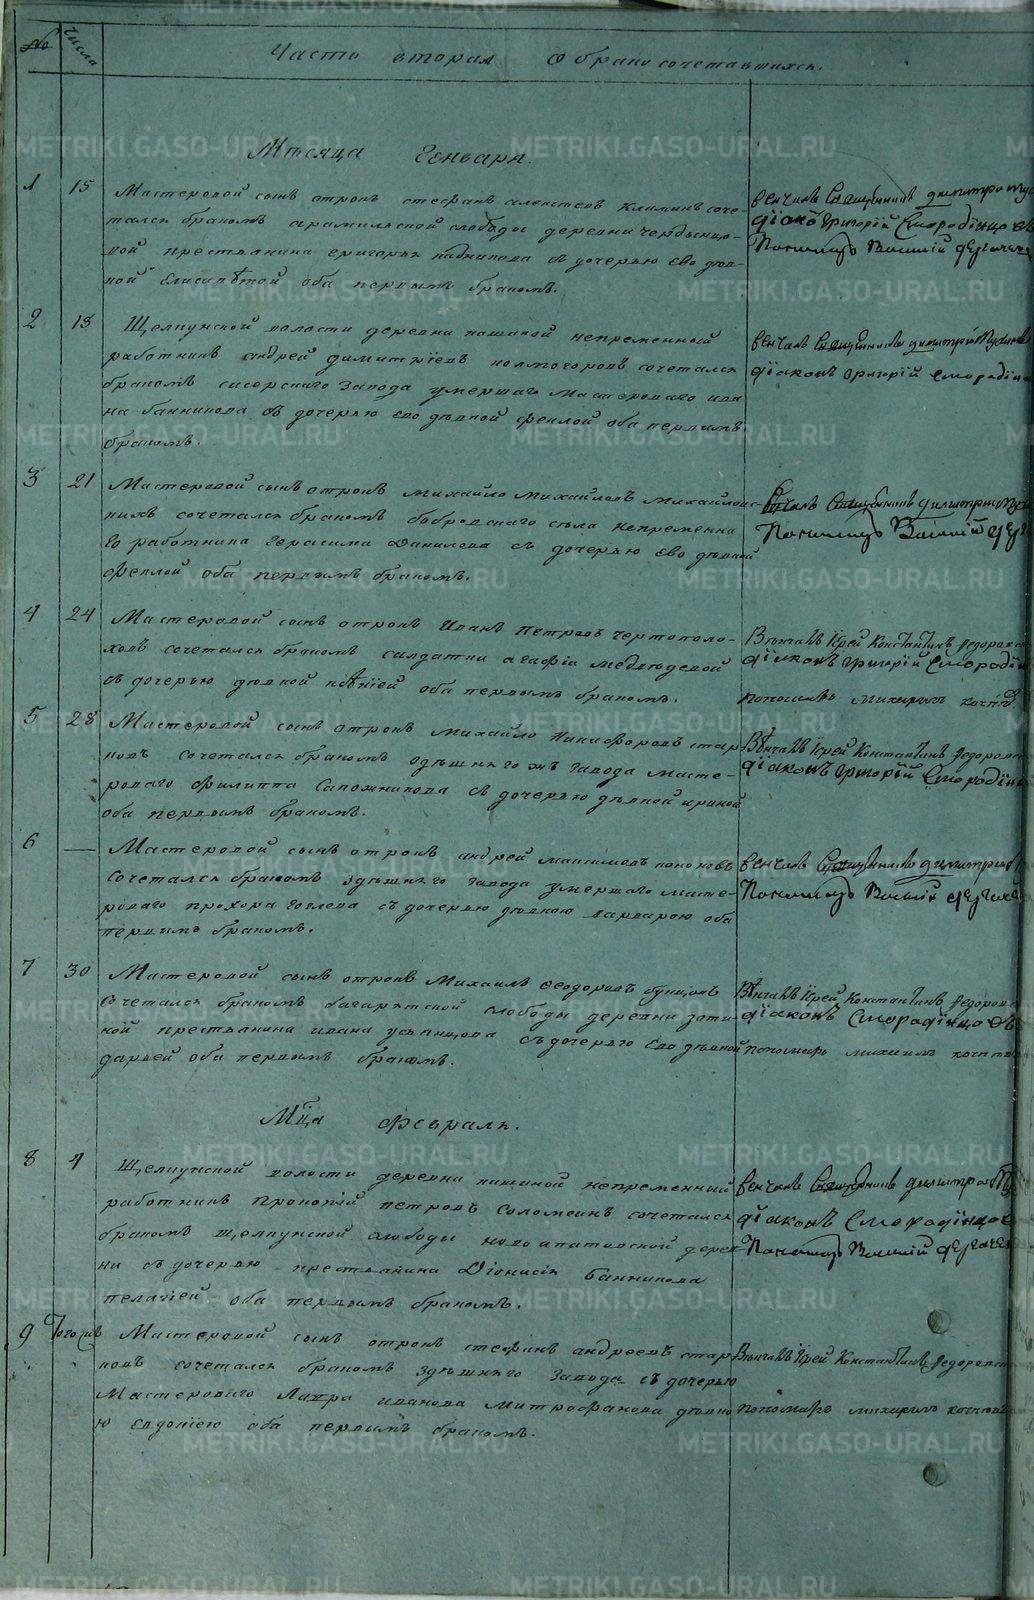 № Числа Часть вторая О браносочетавшихся.
Мѣсяца Генваря.
1 15 Мастеровой сынъ отрокъ стефанъ алексеевъ Климинъ соче-
тался бракомъ арамильской слободы деревни
вой крестьянина григорья съ дочерью ево дѣв-
кой Елисавѣтой оба первымъ бракомъ.
венчалъ Священникъ димитрей
діаконъ григорій Смородинцовъ
Пономарь Василій
2 18 Щелкунской волости деревни кашиной непременный
работникъ андрей димитріевъ колмогоровъ сочетался
бракомъ сисерскаго Завода умершаго Мастероваго ива
на банникова съ дочерью ево дѣвкой феклой оба первымъ
бракомъ.
венчалъ Священникъ димитрій
діаконъ григорій Смородин
3 21 Мастеровой сынъ отрокъ михайло михайловъ
сочетался бракомъ бобровскаго села непременна
го работника Герасима Данилова съ дочерью ево дѣвкой
феклой оба первымъ бракомъ.
Венчалъ Священникъ димитрий
Пономарь Василій
4 24 Мастеровой сынъ отрокъ Иванъ Петровъ чертополо-
ховъ сочетался бракомъ салдатки агафіи медведевой
съ дочерью дѣвкой оба первымъ бракомъ.
Вѣнчалъ Іерей Константинъ Федоровск
діаконъ григорій Смородін
пономарь михаилъ
5 28 Мастеровой сынъ отрокъ михайло Никифоровъ стар
ковъ сочетался бракомъ здѣшняго жъ Завода масте-
роваго Филиппа Сапожникова съ дочерью дѣвкой ириной
оба первымъ бракомъ.
Вѣнчалъ Іерей Константинъ Федоровск
діаконъ григорій Смородінц
6 — Мастеровой сынъ отрокъ андрей максимовъ
сочетался бракомъ здѣшняго Завода умершаго масте-
роваго прохора съ дочерью дѣвкою варварою оба
первымъ бракомъ.
венчалъ Священникъ димитрий
Пономарь Василій
7 30 Мастеровой сынъ отрокъ Михаилъ Феодоровъ
Сочетался бракомъ багарятской слободы деревни
кой крестьянина ивана съ дочерью ево дѣвкой
дарьей оба первымъ бракомъ.
Вѣнчалъ Іерей Константинъ Федоровск
діаконъ Смородінцовъ
пономарь михаилъ
Мца Февраля.
8 4 Щелкунской волости деревни кашиной непременный
работникъ прокопій петровъ Соломеинъ сочетался
бракомъ щелкунской слободы новоипатовской дерев
ни съ дочерью крестьянина Діонисія Банникова
пелагіей оба первымъ бракомъ.
венчалъ Священникъ димитрий
діаконъ Смородінцов
Пономарь Василій
9 Тогожъ Мастеровой сынъ отрокъ стефанъ андреевъ стар
ковъ сочетался бракомъ здѣшняго Завода съ дочерью
Мастероваго Лавра иванова митрофанова дѣвко
ю евдокіею оба первымъ бракомъ.
Вѣнчалъ Іерей Константинъ Федоровск
пономарь михаилъ